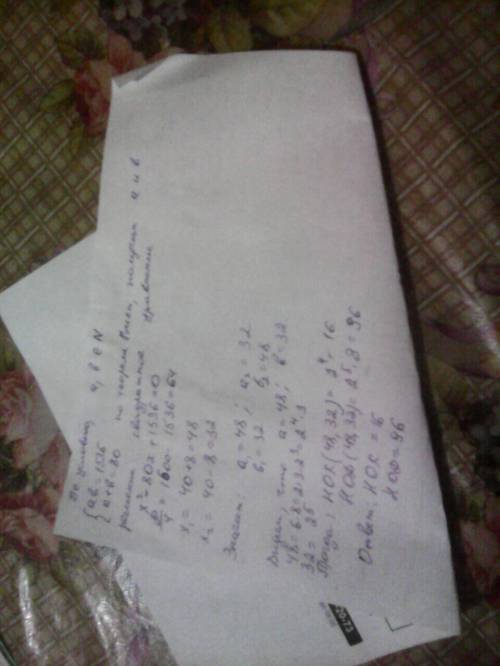 По условию a, b ∈ N
{ab = 1536
a+b = 80 по теореме Виета, получим a и b
решением квадратного уравнения
x² - 80x + 1536 = 0
D/4 = 1600 - 1536 = 64
x₁ = 40 + 8 = 48
x₂ = 40 - 8 = 32
Значит: a₁ = 48; a₂ = 32
b₁ = 32 b₂ = 48
Видим, что a = 48; b = 32
48 = 6·8 = 2·3·2³ = 2⁴·3
32 = 2⁵
Тогда: НОД(48,32) = 2⁴ = 16
НОК(48,32) = 2⁵·3 = 96
Ответ: = 16
= 96